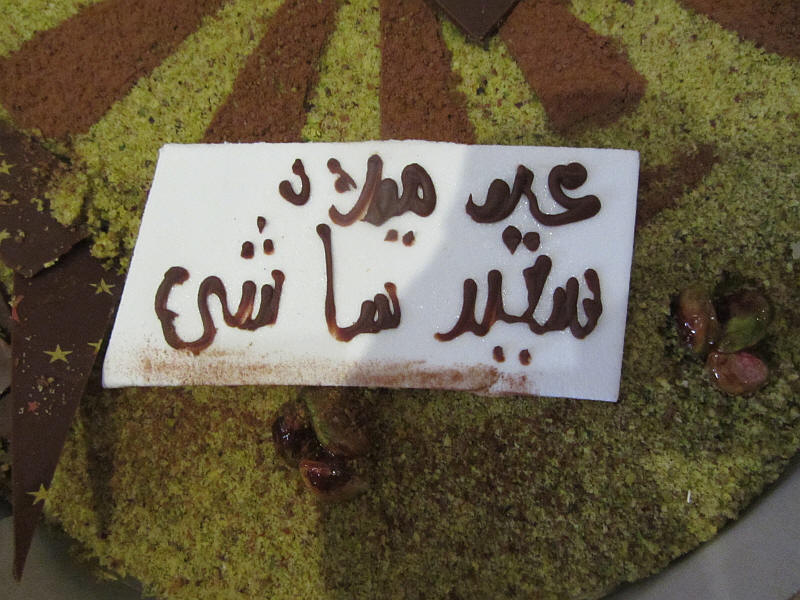 عيد ميلاد
سعيد ساشى